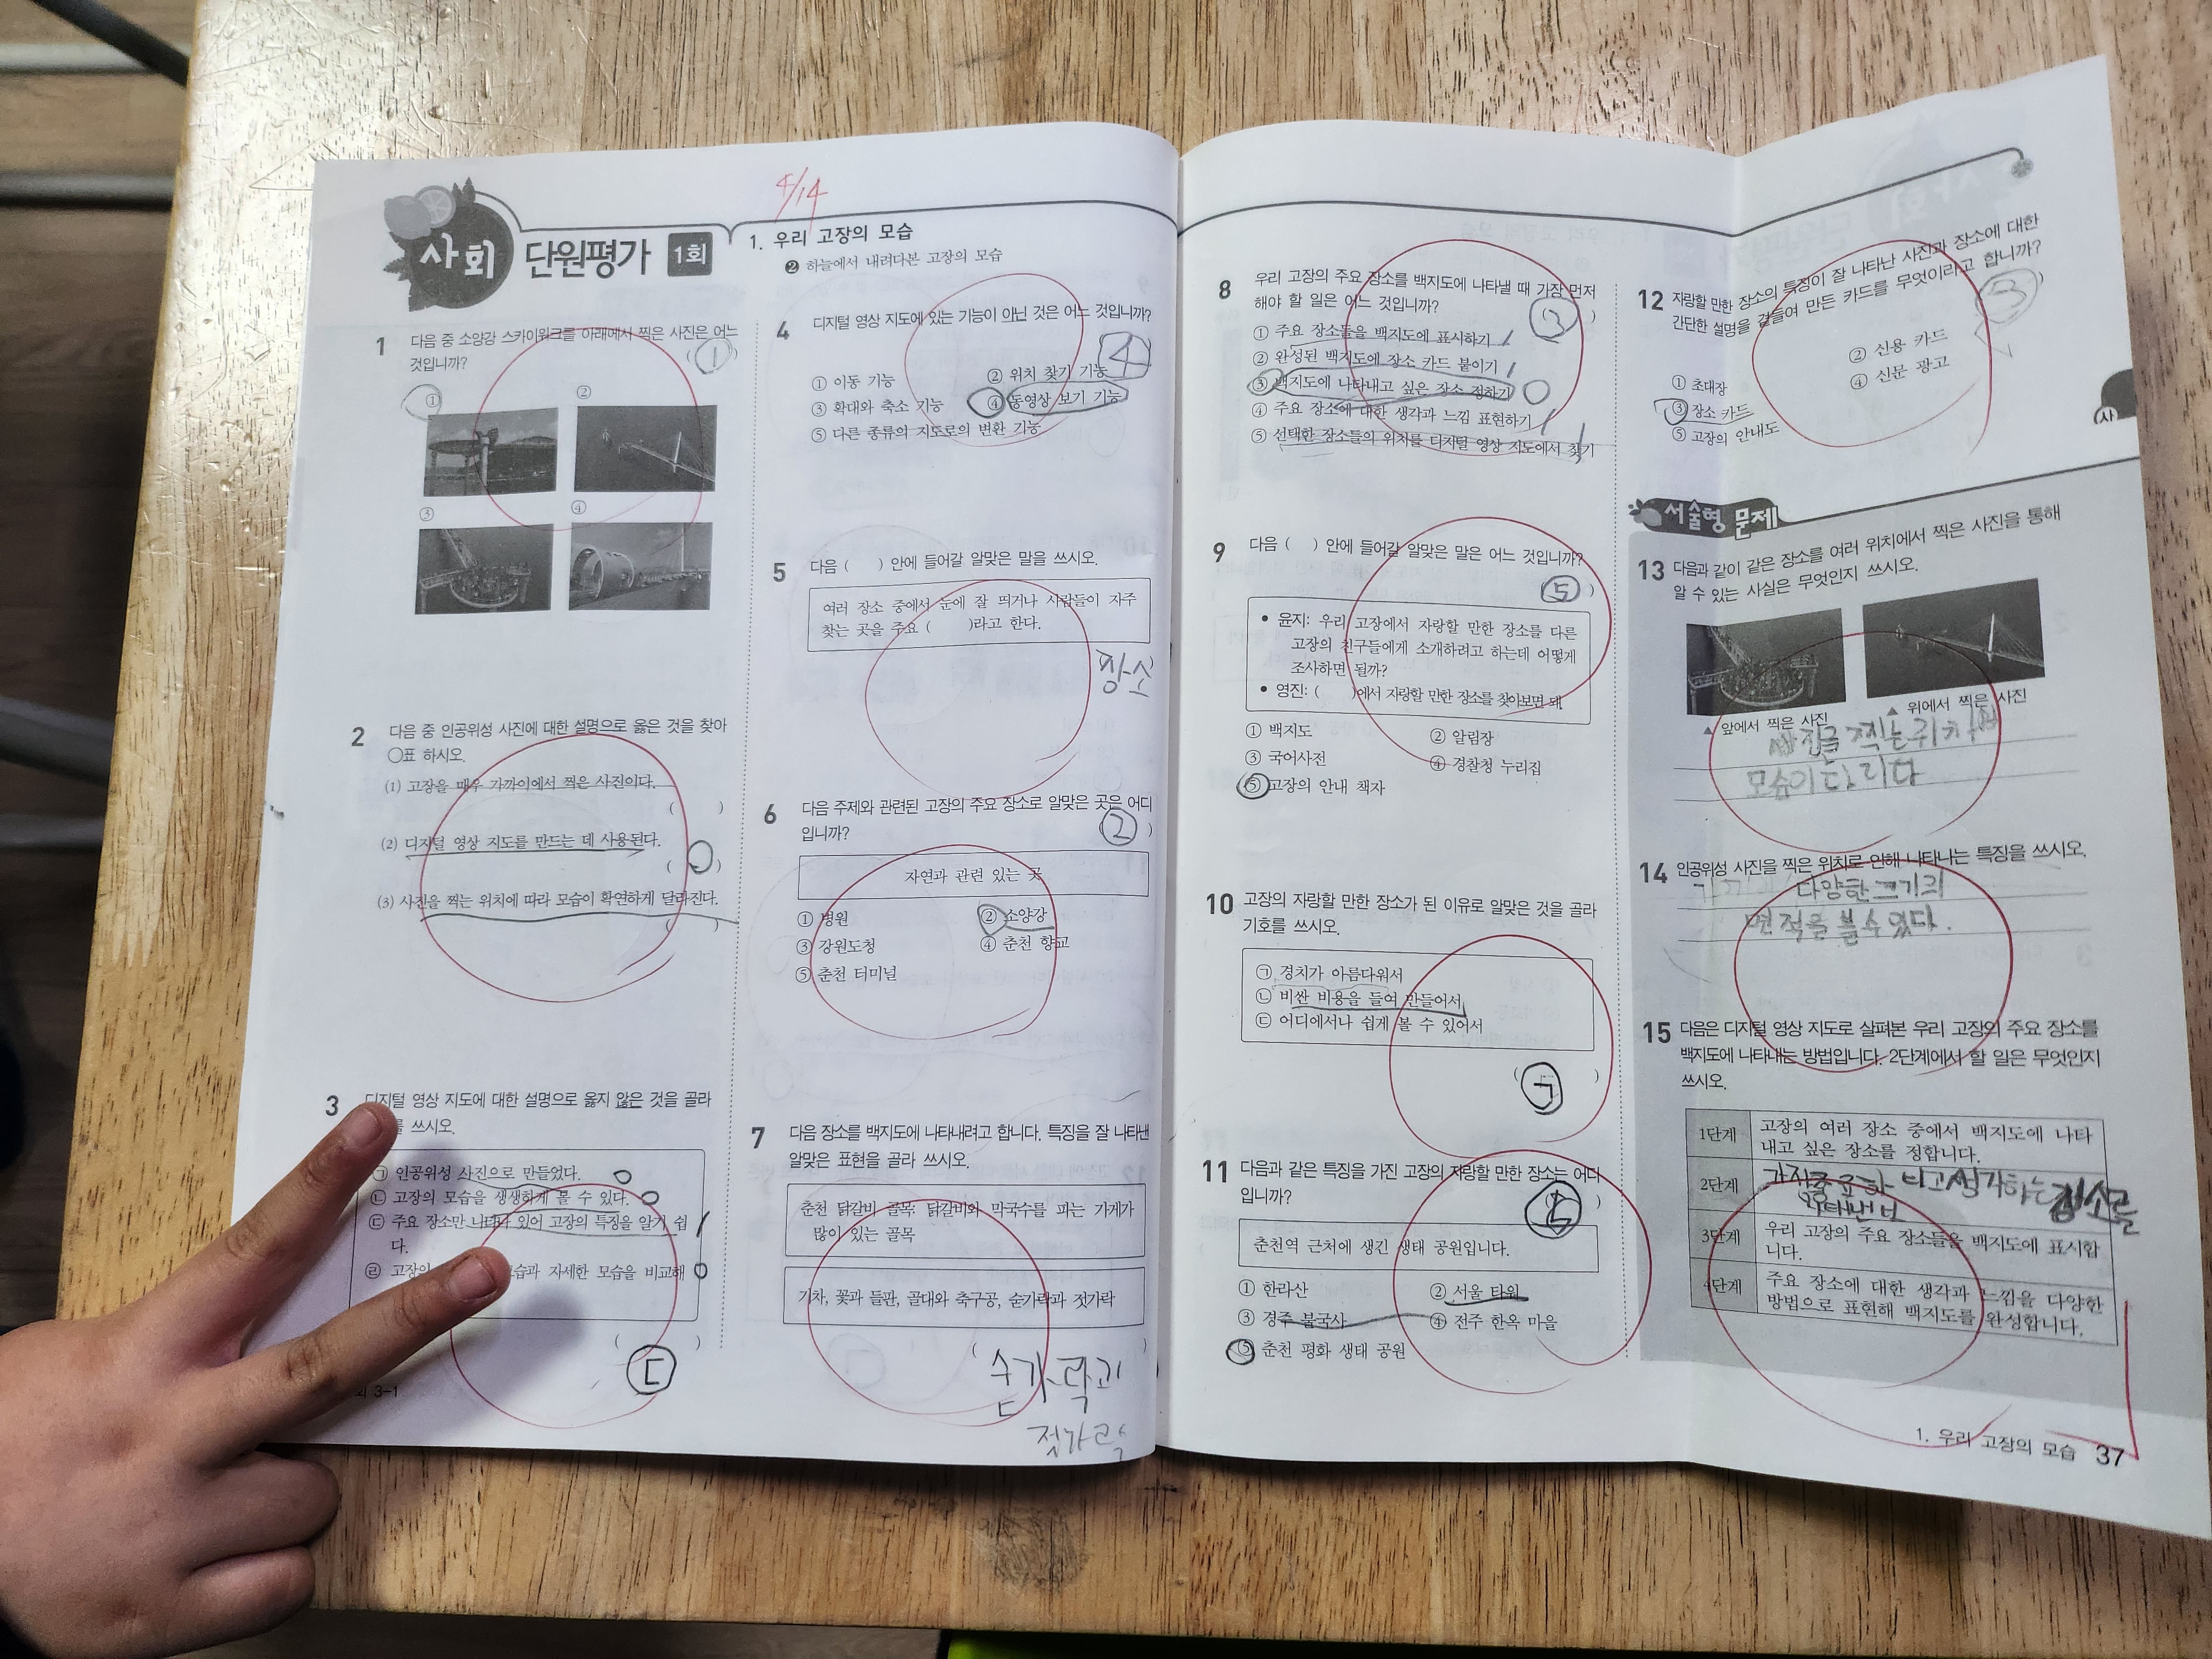 4/14
사회 단원평가 1회
1. 우리 고장의 모습
❷ 하늘에서 내려다본 고장의 모습
1 다음 중 소양강 스카이워크를 아래에서 찍은 사진은 어느
것입니까? ( ① )
①
②
③
④
2 다음 중 인공위성 사진에 대한 설명으로 옳은 것을 찾아
○표 하시오.
(1) 고장을 매우 가까이에서 찍은 사진이다.
( )
(2) 디지털 영상 지도를 만드는 데 사용된다.
( ○ )
(3) 사진을 찍는 위치에 따라 모습이 확연하게 달라진다.
( )
3 디지털 영상 지도에 대한 설명으로 옳지 않은 것을 골라
를 쓰시오.
㉠ 인공위성 사진으로 만들었다. ○
㉡ 고장의 모습을 생생하게 볼 수 있다. ○
㉢ 주요 장소만 나타나 있어 고장의 특징을 알기 쉽
다.
㉣ 고장의 습과 자세한 모습을 비교해 ○
( )
㉢
회 3-1
4 디지털 영상 지도에 있는 기능이 아닌 것은 어느 것입니까?
4
① 이동 기능 ② 위치 찾기 기능
③ 확대와 축소 기능 ④ 동영상 보기 기능
⑤ 다른 종류의 지도로의 변환 기능
5 다음 ( ) 안에 들어갈 알맞은 말을 쓰시오.
여러 장소 중에서 눈에 잘 띄거나 사람들이 자주
찾는 곳을 주요 ( )라고 한다.
장소
6 다음 주제와 관련된 고장의 주요 장소로 알맞은 곳은 어디
입니까? ( ② )
자연과 관련 있는 곳
① 병원 ② 소양강
③ 강원도청 ④ 춘천 향교
⑤ 춘천 터미널
7 다음 장소를 백지도에 나타내려고 합니다. 특징을 잘 나타낸
알맞은 표현을 골라 쓰시오.
춘천 닭갈비 골목: 닭갈비와 막국수를 파는 가게가
많이 있는 골목
기차, 꽃과 들판, 골대와 축구공, 숟가락과 젓가락
( 숟가락과 )
젓가락
8 우리 고장의 주요 장소를 백지도에 나타낼 때 가장 먼저
해야 할 일은 어느 것입니까? ( ③ )
① 주요 장소들을 백지도에 표시하기
② 완성된 백지도에 장소 카드 붙이기
③ 백지도에 나타내고 싶은 장소 정하기 ○
④ 주요 장소에 대한 생각과 느낌 표현하기
⑤ 선택한 장소들의 위치를 디지털 영상 지도에서 찾기
9 다음 ( ) 안에 들어갈 알맞은 말은 어느 것입니까?
( ⑤ )
• 윤지: 우리 고장에서 자랑할 만한 장소를 다른
고장의 친구들에게 소개하려고 하는데 어떻게
조사하면 될까?
• 영진: ( )에서 자랑할 만한 장소를 찾아보면 돼.
① 백지도 ② 알림장
③ 국어사전 ④ 경찰청 누리집
⑤ 고장의 안내 책자
10 고장의 자랑할 만한 장소가 된 이유로 알맞은 것을 골라
기호를 쓰시오.
㉠ 경치가 아름다워서
㉡ 비싼 비용을 들여 만들어서
㉢ 어디에서나 쉽게 볼 수 있어서
( ㉠ )
11 다음과 같은 특징을 가진 고장의 자랑할 만한 장소는 어디
입니까?
춘천역 근처에 생긴 생태 공원입니다.
① 한라산 ② 서울 타워
③ 경주 불국사 ④ 전주 한옥 마을
⑤ 춘천 평화 생태 공원
12 자랑할 만한 장소의 특징이 잘 나타난 사진과 장소에 대한
간단한 설명을 곁들여 만든 카드를 무엇이라고 합니까?
③
① 초대장 ② 신용 카드
③ 장소 카드 ④ 신문 광고
⑤ 고장의 안내도
서술형 문제
13 다음과 같이 같은 장소를 여러 위치에서 찍은 사진을 통해
알 수 있는 사실은 무엇인지 쓰시오.
▲ 앞에서 찍은 사진 ▲ 위에서 찍은 사진
사진을 찍는 위치
모습이 다 리다
14 인공위성 사진을 찍은 위치로 인해 나타나는 특징을 쓰시오.
다양한 크기의
면적을 볼 수 있다.
15 다음은 디지털 영상 지도로 살펴본 우리 고장의 주요 장소를
백지도에 나타내는 방법입니다. 2단계에서 할 일은 무엇인지
쓰시오.
1단계 고장의 여러 장소 중에서 백지도에 나타
내고 싶은 장소를 정합니다.
2단계 생각하는 장소를
3단계 우리 고장의 주요 장소들을 백지도에 표시합
니다.
4단계 주요 장소에 대한 생각과 느낌을 다양한
방법으로 표현해 백지도를 완성합니다.
1. 우리 고장의 모습 37